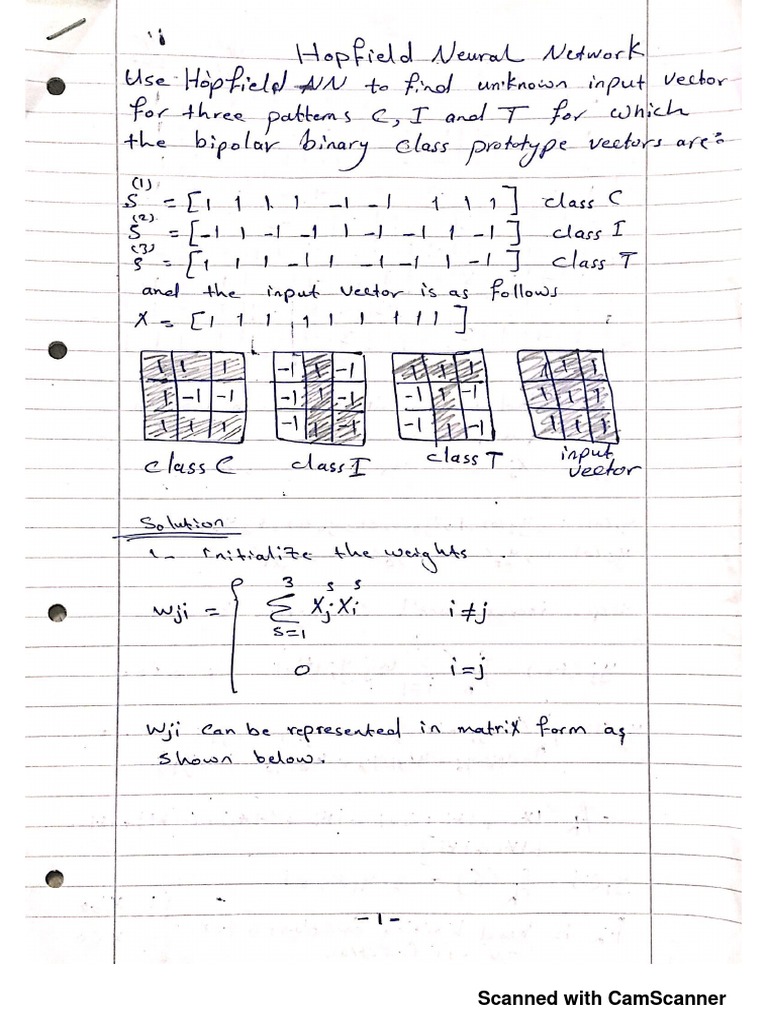 Hopfield Neural Network
Use Hopfield NN to find unknown input vector
for three patterns C, I and T for which
the bipolar binary class prototype vectors are:
S^(1) = [1 1 1 1 -1 -1 1 1 1] class C
S^(2) = [-1 1 -1 -1 1 -1 -1 1 -1] class I
S^(3) = [1 1 1 -1 1 -1 -1 1 -1] class T
and the input vector is as follows
X = [1 1 1 1 1 1 1 1 1]
1 1 1 -1 1 -1 1 1 1 1 1 1
1 -1 -1 -1 1 -1 -1 1 -1 1 1 1
1 1 1 -1 1 -1 -1 1 -1 1 1 1
class C class I class T input vector
Solution
1- initialize the weights.
wji = { Σ_{s=1}^{3} Xj^s Xi^s i≠j
0 i=j
Wji can be represented in matrix form as
shown below.
-1-
Scanned with CamScanner